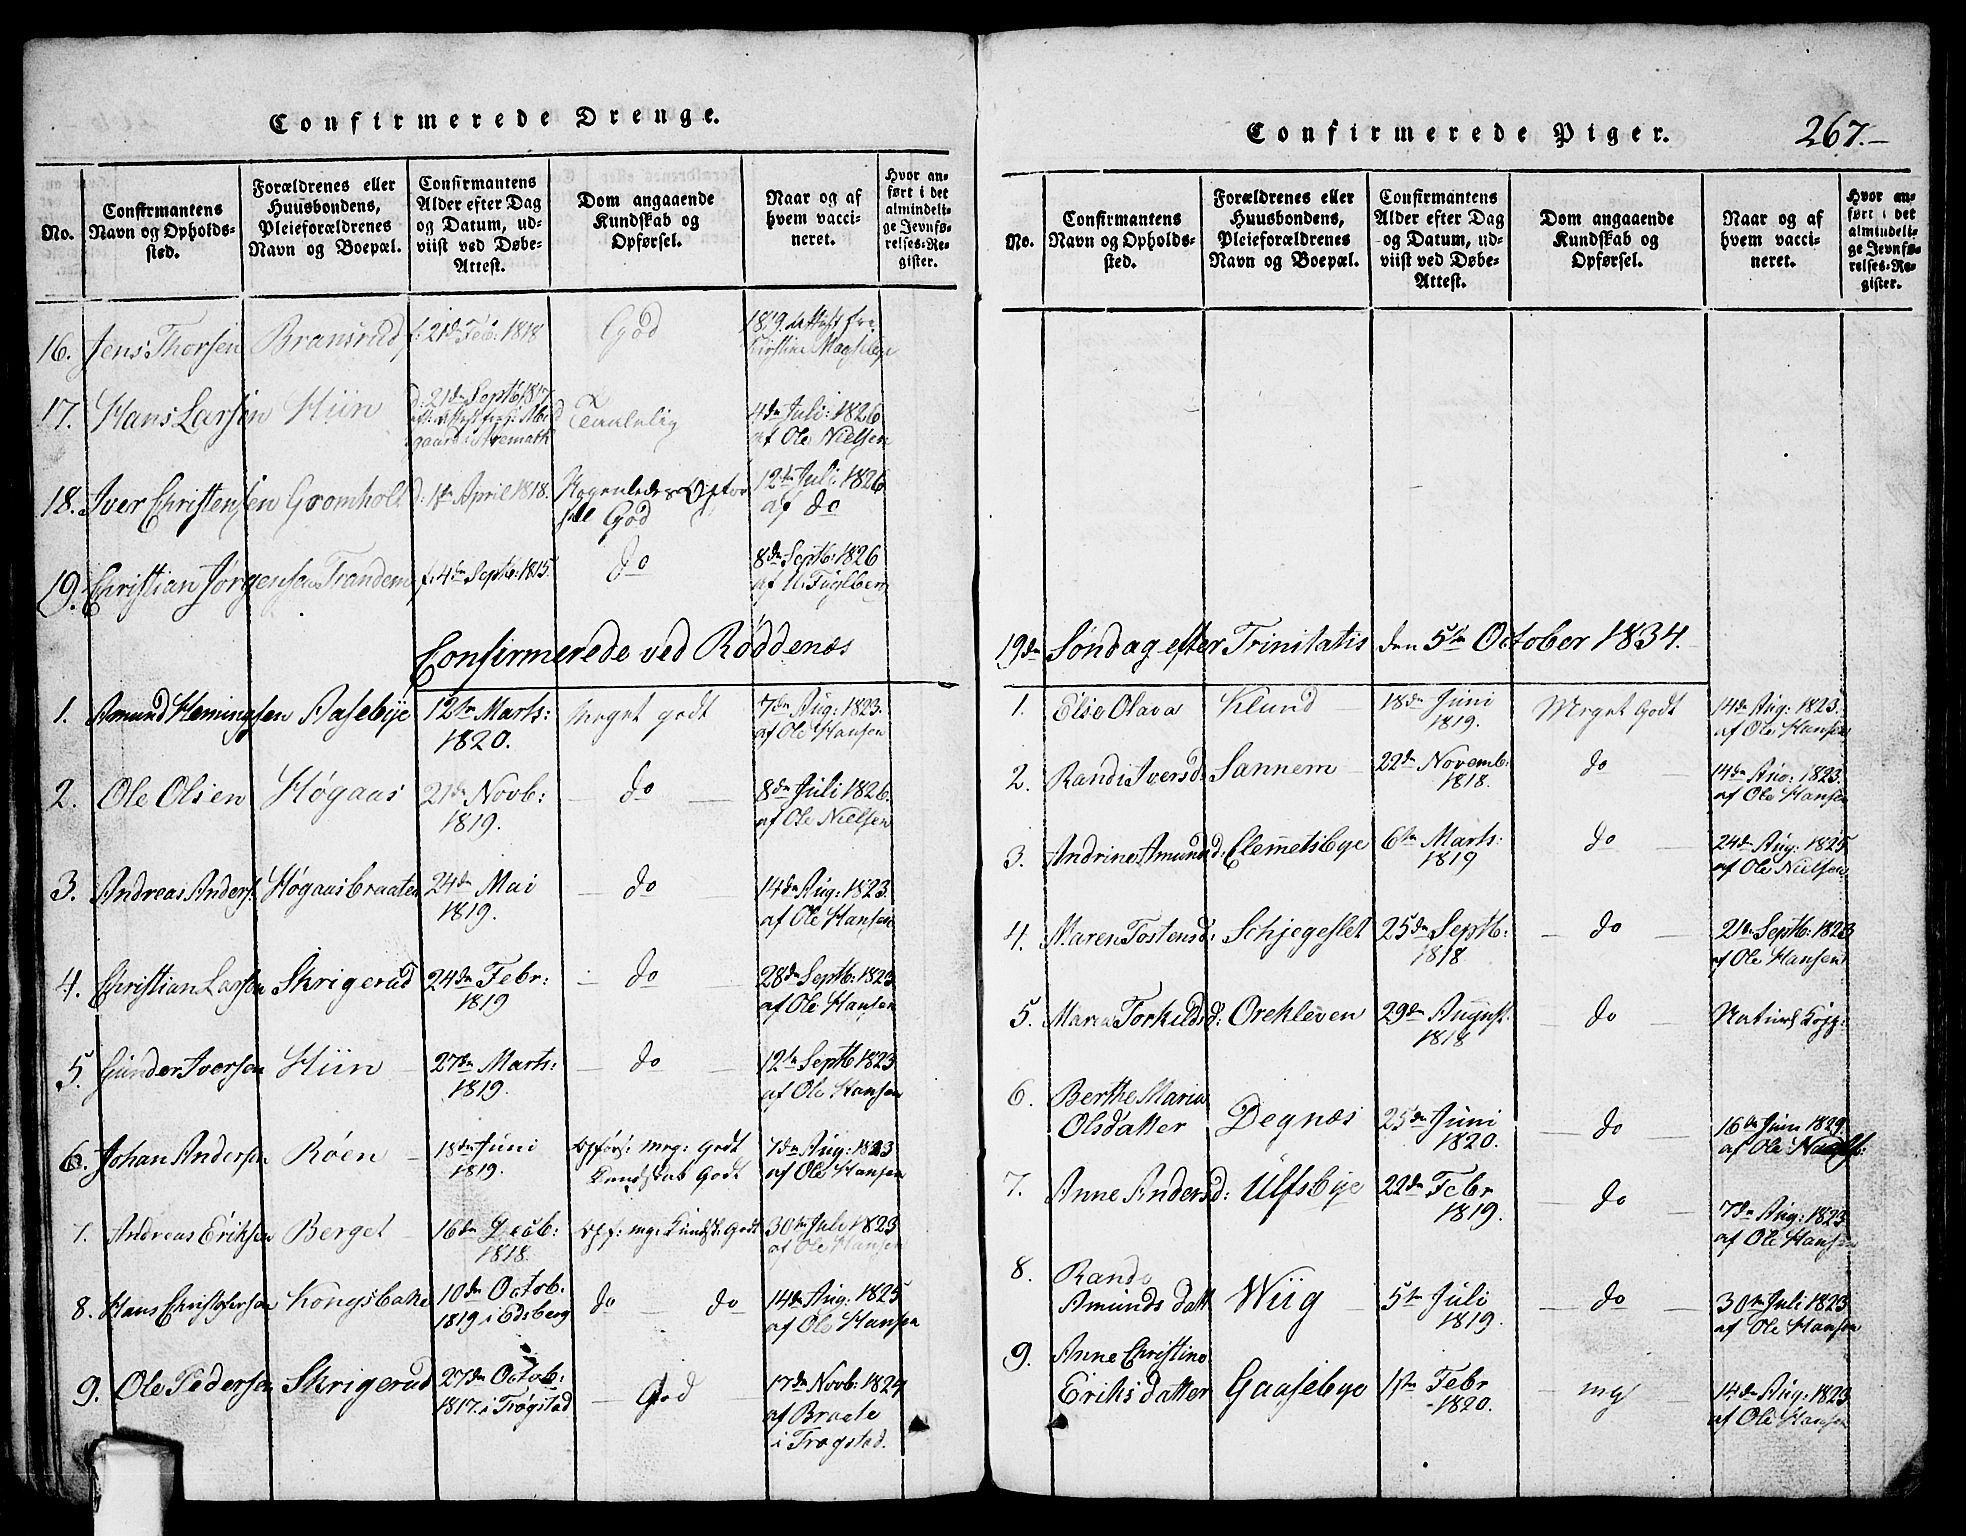 Confirmerede Drenge.
No.
Confirmantens Navn og Opholds-sted.
Forældrenes eller Huusbondens, Pleieforældrenes Navn og Boepæl.
Confirmantens Alder efter Dag og Datum, ud-viist ved Døbe-Attest.
Dom angaaende Kundskab og Opførsel.
Naar og af hvem vacci-neret.
Hvor an-ført i det almindeli-ge Jevnfø-relses-Re-gister.
16. Jens Thorsen Bransrud f: 21de Feb: 1818 God 1819. Attest fra
17. Hans Larsen Hiin d: 21de Septb: 1817 Taalelig 4de Juli: 1826
af Ole Nielsen
18. Iver Christensen Gromholt d: 1ste April 1818. 12te Juli 1826
God af do
19. Christian Jörgensen Trandem f: 4de Septb: 1815. do 8de Septb: 1826
af
Confirmerede ved Röddenæs
1. Amund Hemingsen Aasebye 12te Marts: Meget godt 7de Aug: 1823.
1820. af Ole Hansen
2. Ole Olsen Høgaas 21de Novb: do 8de Juli 1826.
1819. af Ole Nielsen
3. Andreas Anders: Høgaasbraaten 24de Mai do 14de Aug: 1823
1819. af Ole Hansen
4. Christian Larsen Skrigerud 24de Febr: do 28de Septb: 1823
1819 af Ole Hansen
5. Gunder Iversen Hiin 27de Marts: do 12te Septb 1823
1819. af Ole Hansen
6. Johan Andersen Röen 18de Juni Opförs: meg: Godt 7de Aug: 1823
1819. Kundskab Godt af Ole Hansen
7. Andreas Eriksen Berget 16de Decb: Opf: mg: Kundsk: Godt 30te Juli 1823
1818. af Ole Hansen
8. Hans Christofersen Kongsbakke 10de Octob. do do 14de Aug: 1825
1819 i Edsberg af Ole Hansen
9. Ole Pedersen Skrigerud 27de Octob: God 17de Novb: 1824
1817. i Trøgstad af Braate
i Trøgstad.
Confirmerede Piger.
267.-
No.
Confirmantens Navn og Opholds-sted.
Forældrenes eller Huusbondens, Pleieforældrenes Navn og Boepæl.
Confirmantens Alder efter Dag og Datum, ud-viist ved Døbe-Attest.
Dom angaaende Kundskab og Opførsel.
Naar og af hvem vacci-neret.
Hvor an-ført i det almindeli-ge Jevnfø-relses-Re-gister.
19de Søndag efter Trinitatis den 5te October 1834.
1. Elise Olava Klund 18de Juni Meget Godt 14de Aug: 1823.
1819. af Ole Hansen
2. Randi Iversd: Sannem 22de Novemb: do 14de Aug: 1823.
1818. af Ole Hansen
3. Andrine Amundsd: Clemetsbye 6te Marts: do 24de Aug: 1825
1819 af Ole Nielsen
4. Maren Tostensd: Schjegeslet 25de Septb: do 21de Septb: 1823
1818 af Ole Hansen
5. Maria Torkildsd: Orekleven 29de August: do Naturl: Kopp:
1818
6. Berthe Maria
Olsdatter Degnæs 25de Juni do 16de Juni 1829
1820. af Ole
7. Anne Andersd: Ulfsbye 22de Febr do 7de Aug: 1823
1819. af Ole Hansen
8. Rande
Amunds datt Wiig 5te Juli do 30te Juli 1823
1819. af Ole Hansen
9. Anne Christine
Eriksdatter Gaasebye 1ste Febr mg 14de Aug: 1823
1820. af Ole Hansen